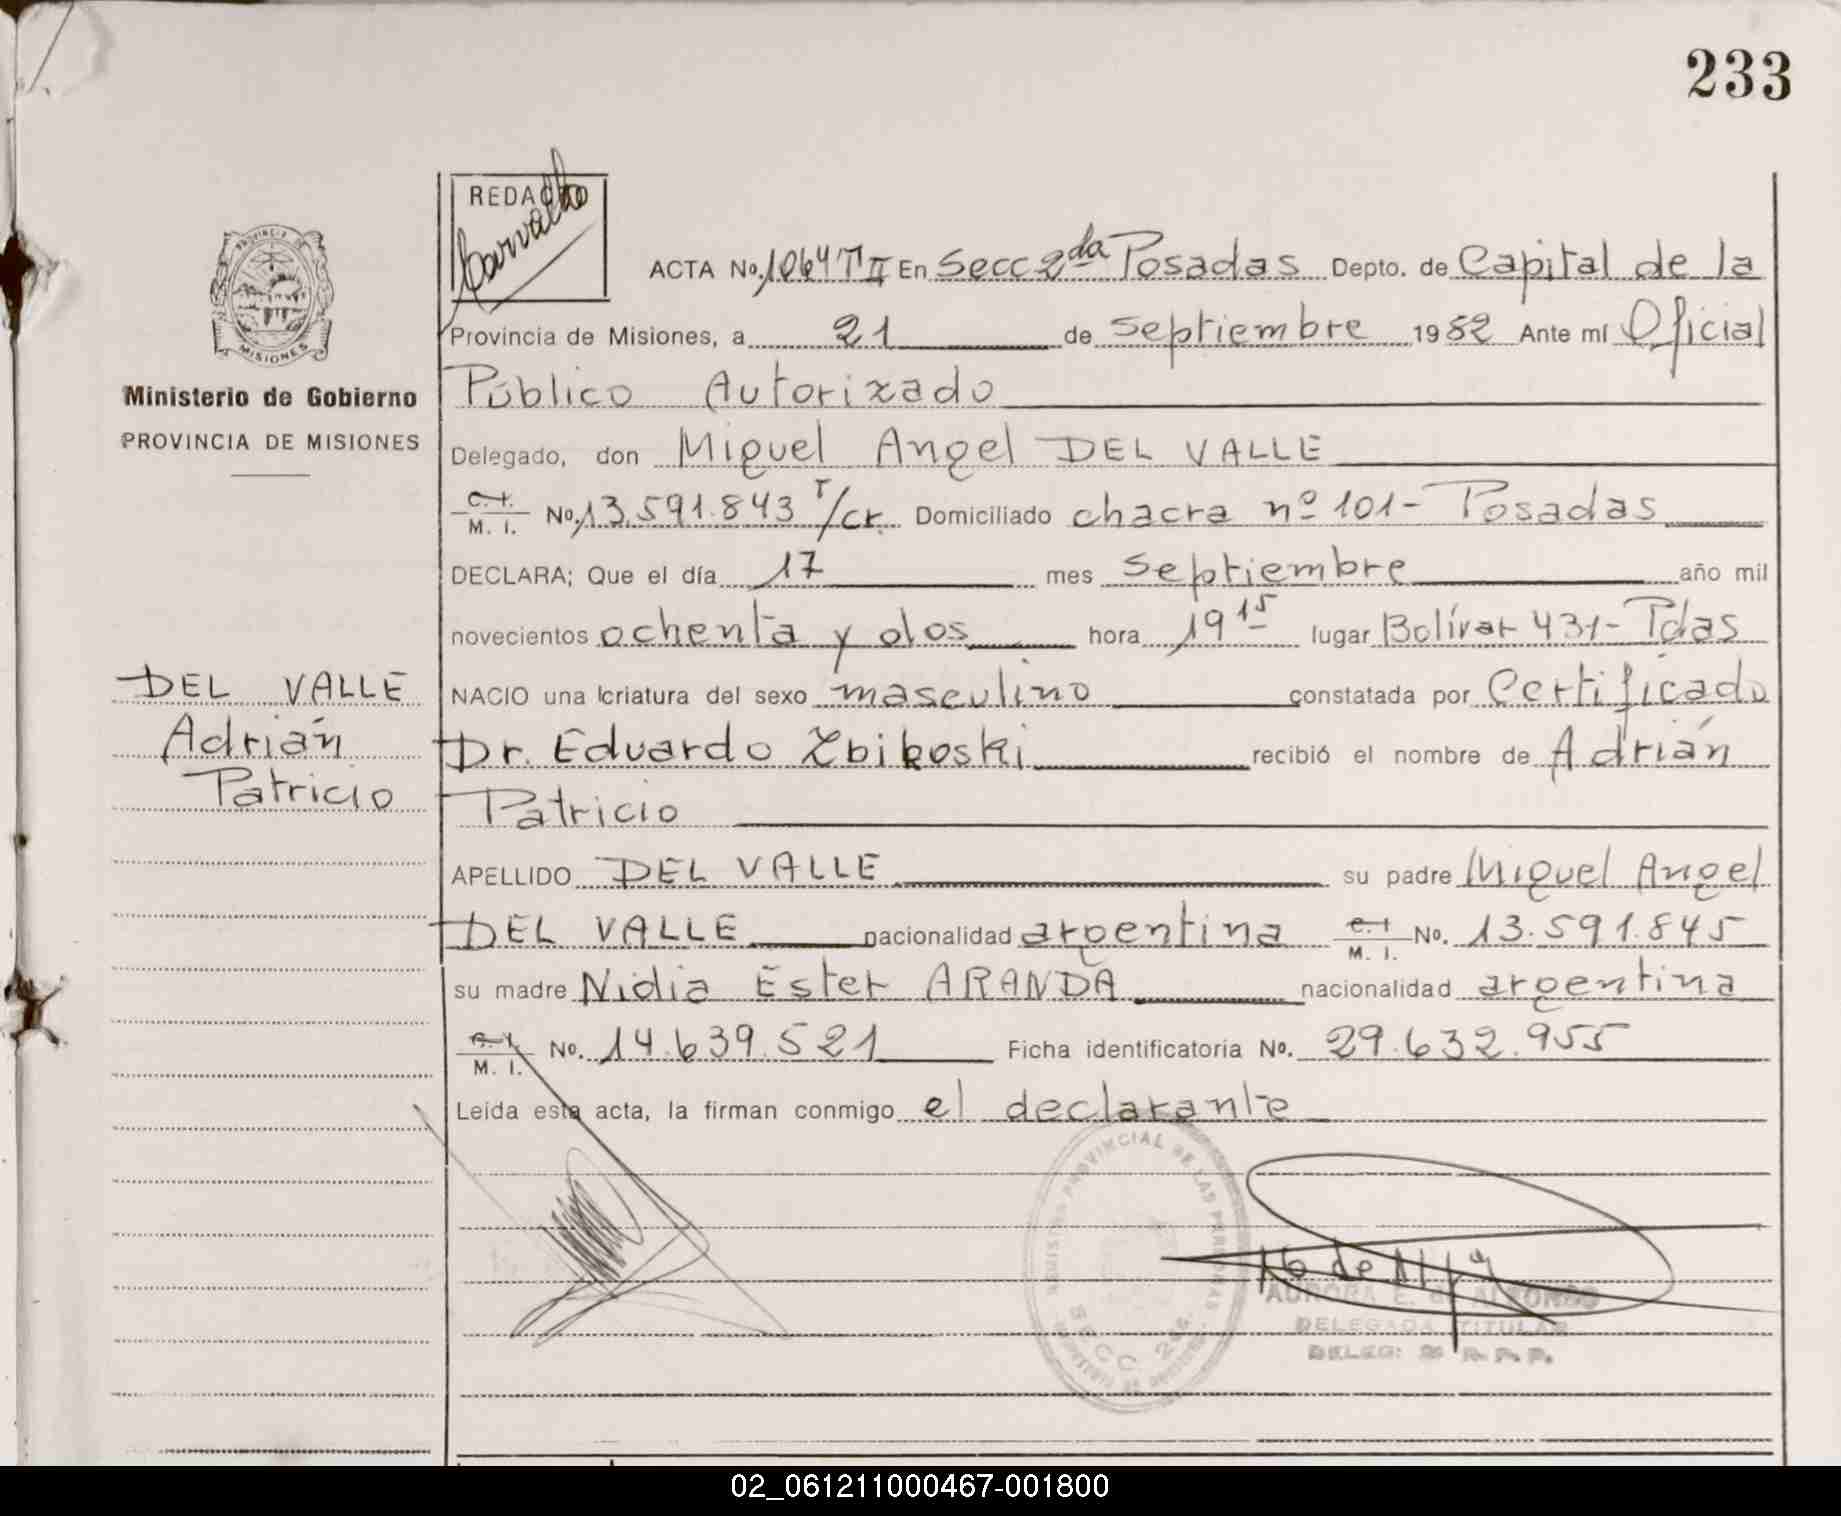 233
REDACTO
Carvalho
ACTA No. 1064 T II En Secc 2da Posadas Depto. de Capital de la
Provincia de Misiones, a 21 de Septiembre 1982 Ante mí Oficial
Público Autorizado
Delegado, don Miguel Angel DEL VALLE
C. I.
M. I. No. 13.591.843 T/cr. Domiciliado chacra nº 101 - Posadas
DECLARA; Que el día 17 mes Septiembre año mil
novecientos ochenta y dos hora 19 15 lugar Bolívar 431 - Pdas
NACIO una criatura del sexo masculino constatada por Certificado
Dr. Eduardo Zbikoski recibió el nombre de Adrián
Patricio
APELLIDO DEL VALLE su padre Miguel Angel
DEL VALLE nacionalidad argentina C. I. M. I. No. 13.591.845
su madre Nidia Ester ARANDA nacionalidad argentina
C. I. M. I. No. 14.639.521 Ficha identificatoria No. 29.632.955
Leída esta acta, la firman conmigo el declarante
PROVINCIA DE
MISIONES
Ministerio de Gobierno
PROVINCIA DE MISIONES
DEL VALLE
Adrián
Patricio
REGISTRO PROVINCIAL DE LAS PERSONAS
SECC 2da.
AURORA E. de ALFONSO
DELEGADA TITULAR
DELEG: 2ª R. P. P.
02_061211000467-001800